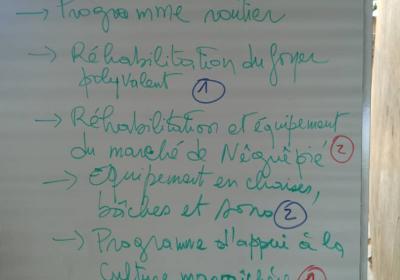 → Programme routier
→ Réhabilitation du foyer
polyvalent 1
→ Réhabilitation et équipement
du marché de Nêguêpié 2
→ Equipement en chaises,
bâches et sono 2
→ Programme d'appui à la
Culture maraîchère 1